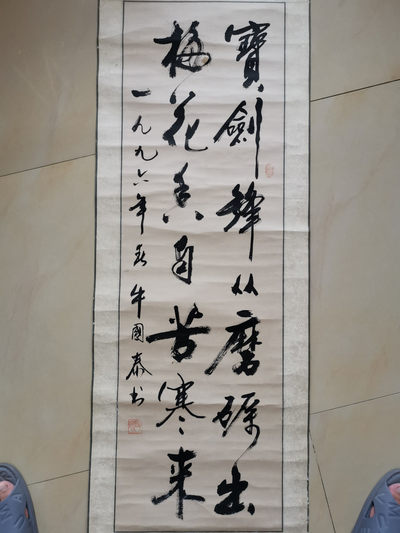 寶劍鋒从磨礪出
梅花香自苦寒来
一九九六年春牛國泰书